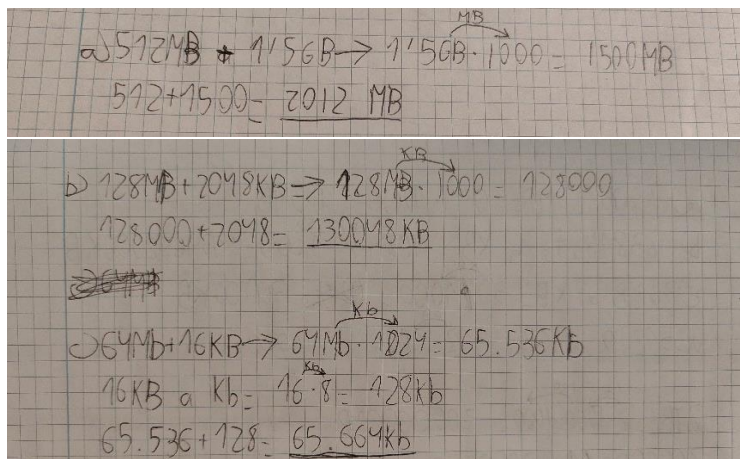 MB
a) 512MB + 1'5GB → 1'5GB · 1000 = 1500MB
512+1500= 2012 MB
KB
b) 128MB+2048KB => 128MB · 1000 = 128000
128000+2048= 130048KB
Kb
c) 64Mb+16KB → 64Mb · 1024= 65.536Kb
Kb
16KB a Kb= 16·8= 128Kb
65.536+128= 65.664Kb